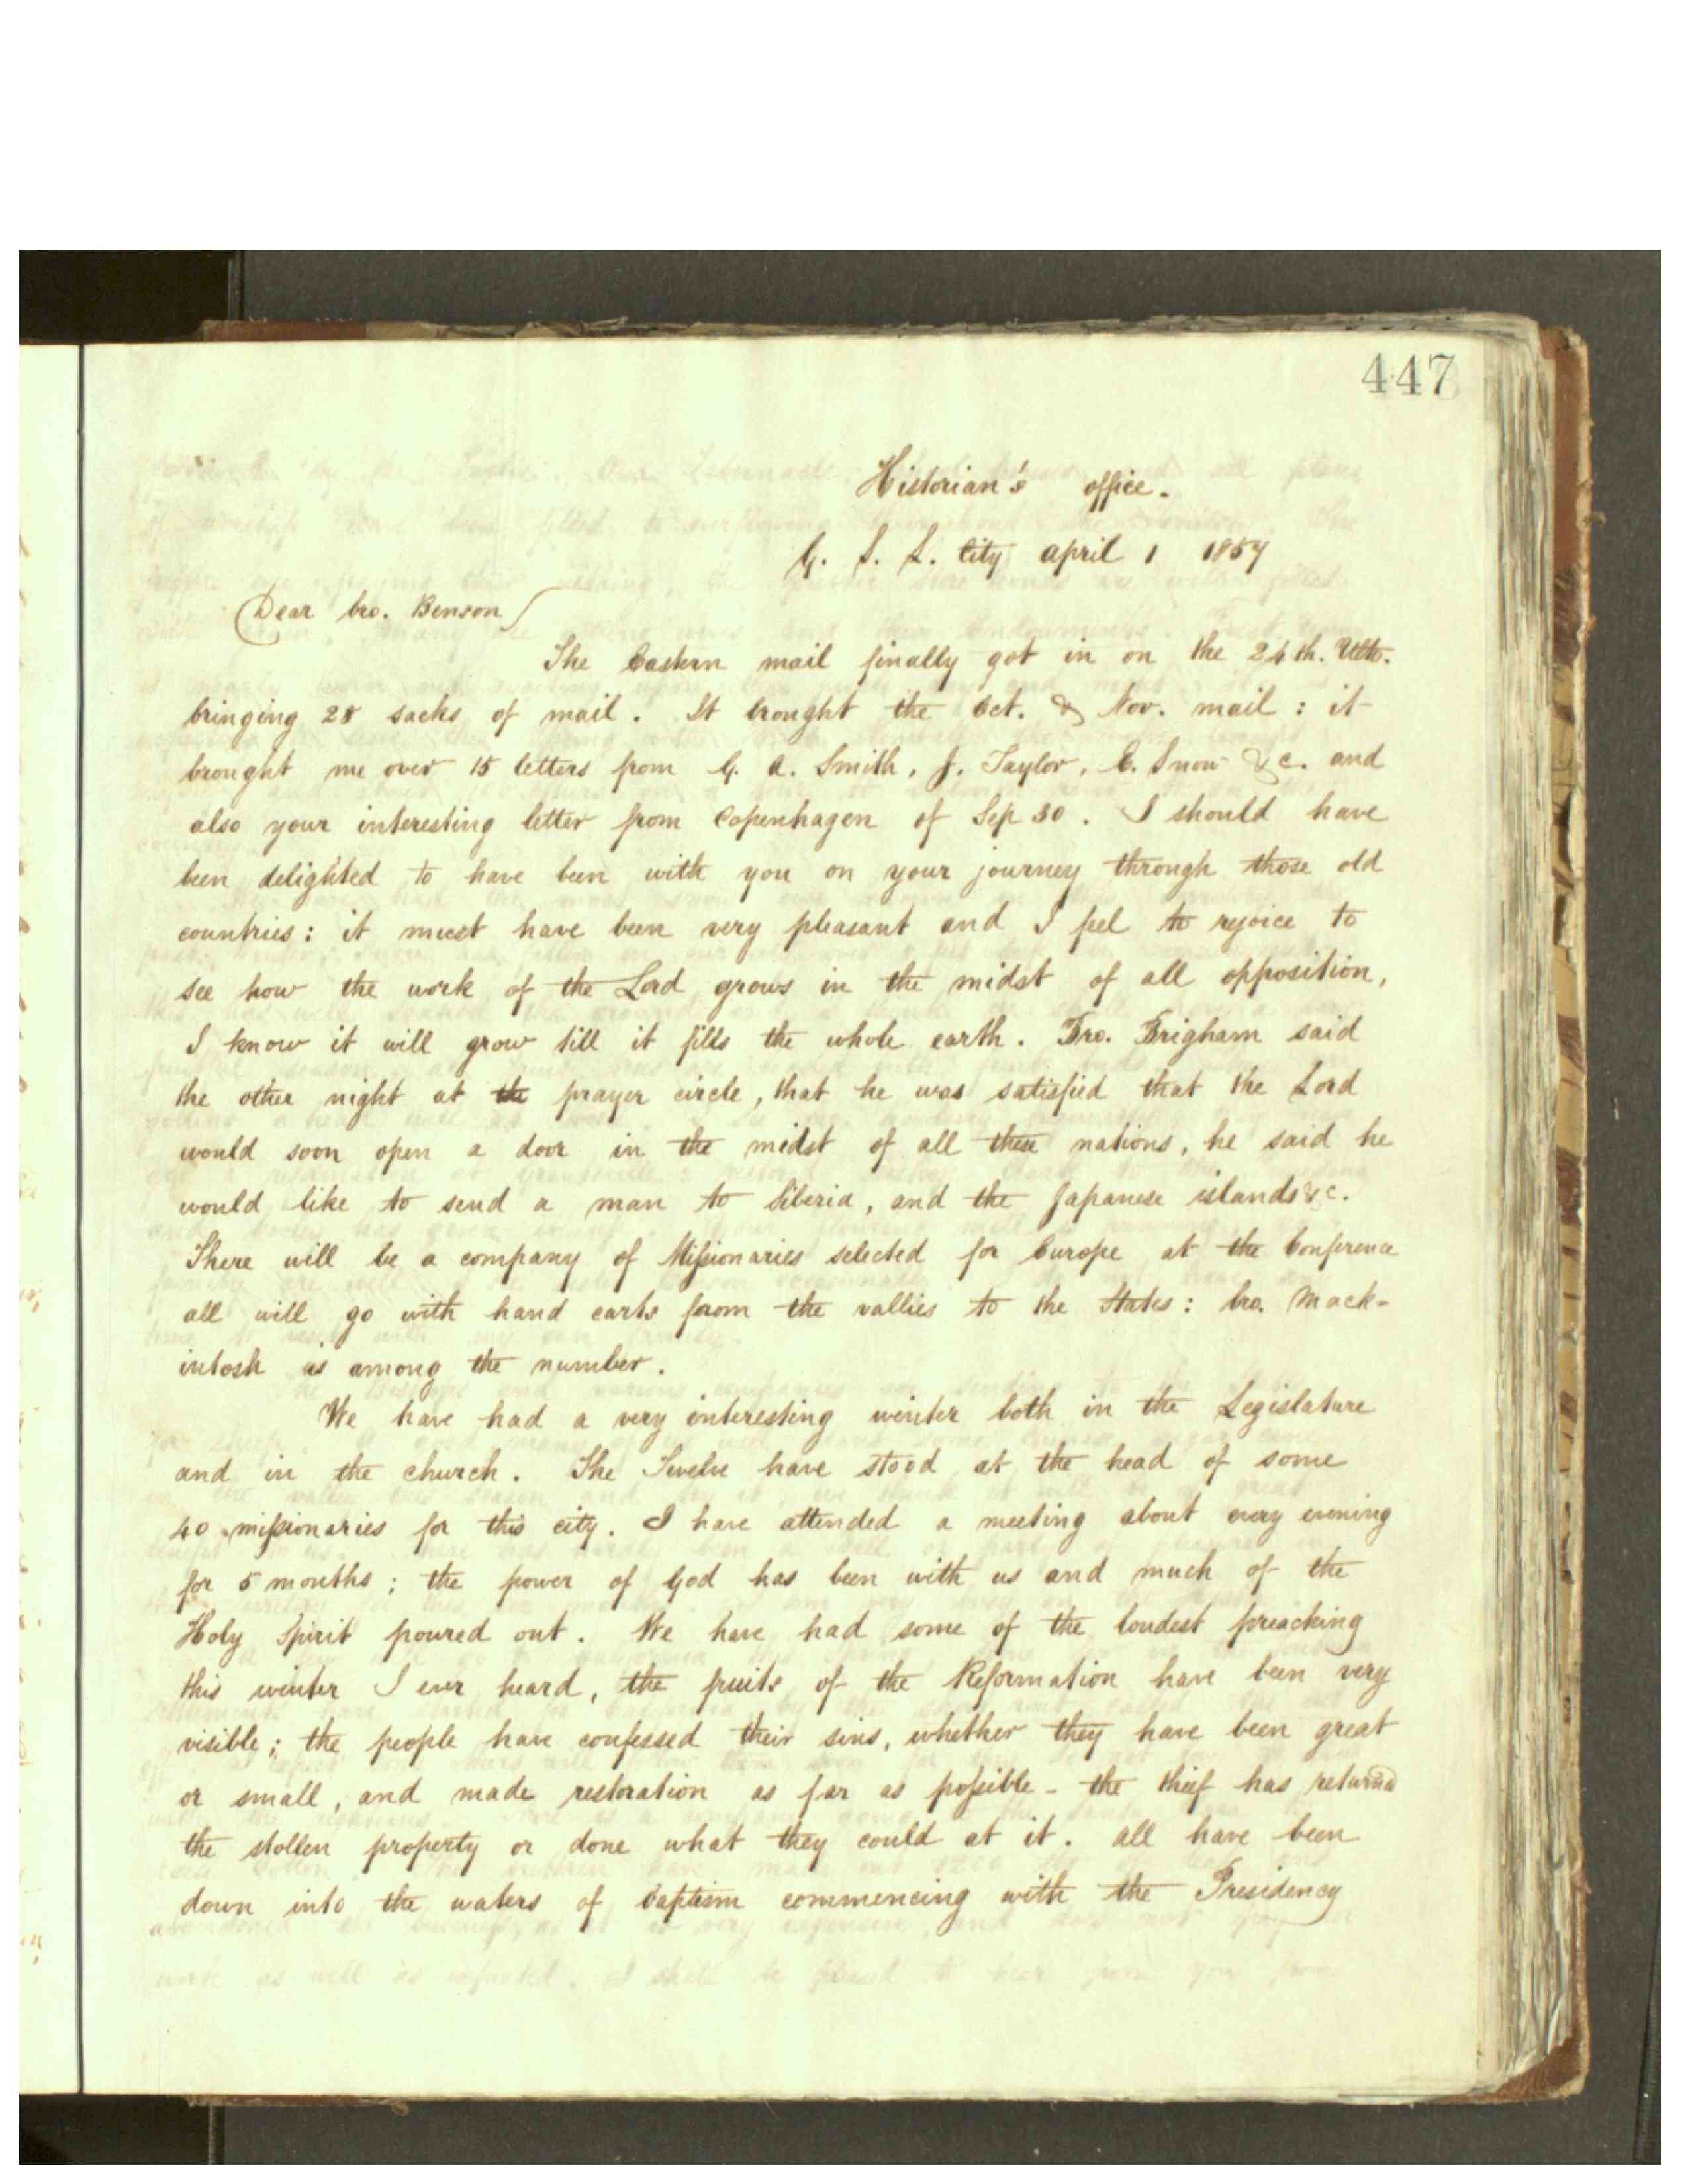 447
Historian's office.
G. S. L. City april 1 1857
Dear bro. Benson
The Eastern mail finally got in on the 24th. Ulto.
bringing 28 sacks of mail. It brought the Oct. & Nov. mail: it
brought me over 15 letters from G. A. Smith, J. Taylor, E. Snow &c. and
also your interesting letter from Copenhagen of Sep 30. I should have
been delighted to have been with you on your journey through those old
countries: it must have been very pleasant and I feel to rejoice to
see how the work of the Lord grows in the midst of all opposition,
I know it will grow till it fills the whole earth. Bro. Brigham said
the other night at the prayer circle, that he was satisfied that the Lord
would soon open a door in the midst of all these nations, he said he
would like to send a man to Siberia, and the Japanese islands &c.
There will be a company of Missionaries selected for Europe at the Conference
all will go with hand carts from the vallies to the States: bro. Mack-
intosh is among the number.
We have had a very interesting winter both in the Legislature
and in the church. The Twelve have stood at the head of some
40 missionaries for this city. I have attended a meeting about every evening
for 5 months; the power of God has been with us and much of the
Holy Spirit poured out. We have had some of the loudest preaching
this winter I ever heard, the fruits of the Reformation have been very
visible; the people have confessed their sins, whether they have been great
or small, and made restoration as far as possible - the thief has returned
the stollen property or done what they could at it. all have been
down into the waters of baptism commencing with the Presidency